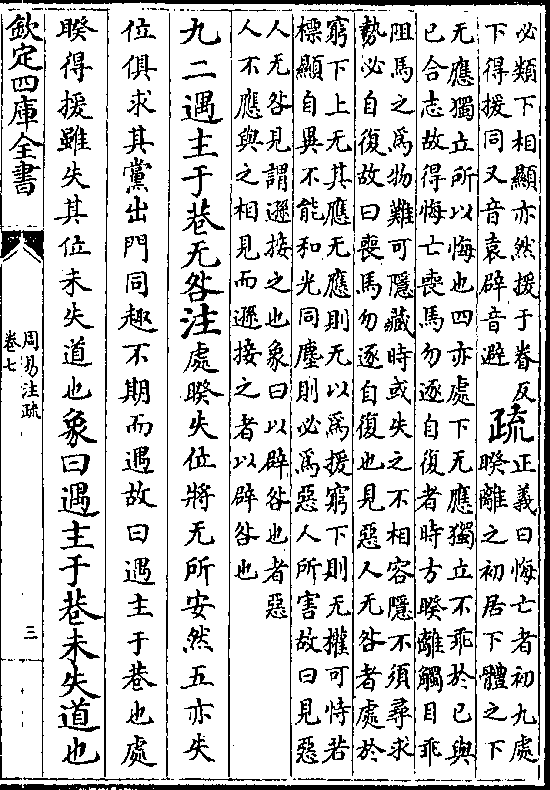 必類下相顯亦然援于眷反
下得援同又音袁辟音避
疏
正義曰悔亡者初九處
睽離之初居下體之下
无應獨立所以悔也四亦處下无應獨立不乖於已與
已合志故得悔亡喪馬勿逐自復者時方睽離觸目乖
阻馬之為物難可隱藏時或失之不相容隱不須尋求
勢必自復故曰喪馬勿逐自復也見惡人无咎者處於
窮下上无其應无應則无以為援窮下則无權可恃若
標顯自異不能和光同塵則必為惡人所害故曰見惡
人无咎見謂遜接之也象曰以辟咎也者惡
人不應與之相見而遜接之者以辟咎也
九二遇主于巷无咎注處睽失位將无所安然五亦失
位俱求其黨出門同趣不期而遇故曰遇主于巷也處
睽得援雖失其位未失道也象曰遇主于巷未失道也
欽定四庫全書
周易注疏
卷七
三